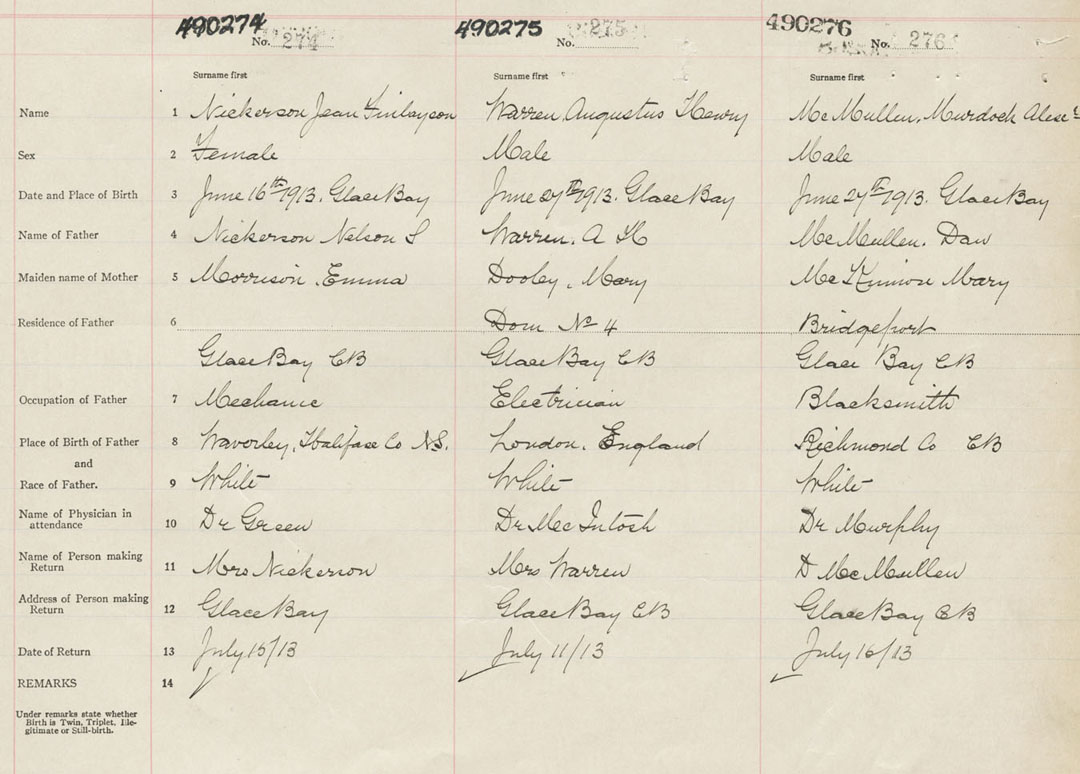 490274 No. 274 490275 No. 275 490276 No. 276
Surname first Surname first Surname first
Name 1 Nickerson Jean Finlayson Warren, Augustus Henry McMullen, Murdock Alexr
Sex 2 Female Male Male
Date and Place of Birth 3 June 16th 1913. Glace Bay June 27th 1913. Glace Bay June 27th 1913. Glace Bay
Name of Father 4 Nickerson Nelson S Warren, A H McMullen. Dan
Maiden name of Mother 5 Morrison, Emma Dooley, Mary McKinnon Mary
Residence of Father 6 Dom No 4 Bridgeport
Glace Bay CB Glace Bay CB Glace Bay CB
Occupation of Father 7 Mechanic Electrician Blacksmith
Place of Birth of Father 8 Waverley, Halifax Co NS. London, England Richmond Co CB
and
Race of Father. 9 White White White
Name of Physician in
attendance 10 Dr Green Dr MacIntosh Dr Murphy
Name of Person making
Return 11 Mrs Nickerson Mrs Warren D McMullen
Address of Person making
Return 12 Glace Bay Glace Bay CB Glace Bay CB
Date of Return 13 July 15/13 July 11/13 July 16/13
REMARKS 14
Under remarks state whether
Birth is Twin, Triplet, Ille-
gitimate or Still-birth.